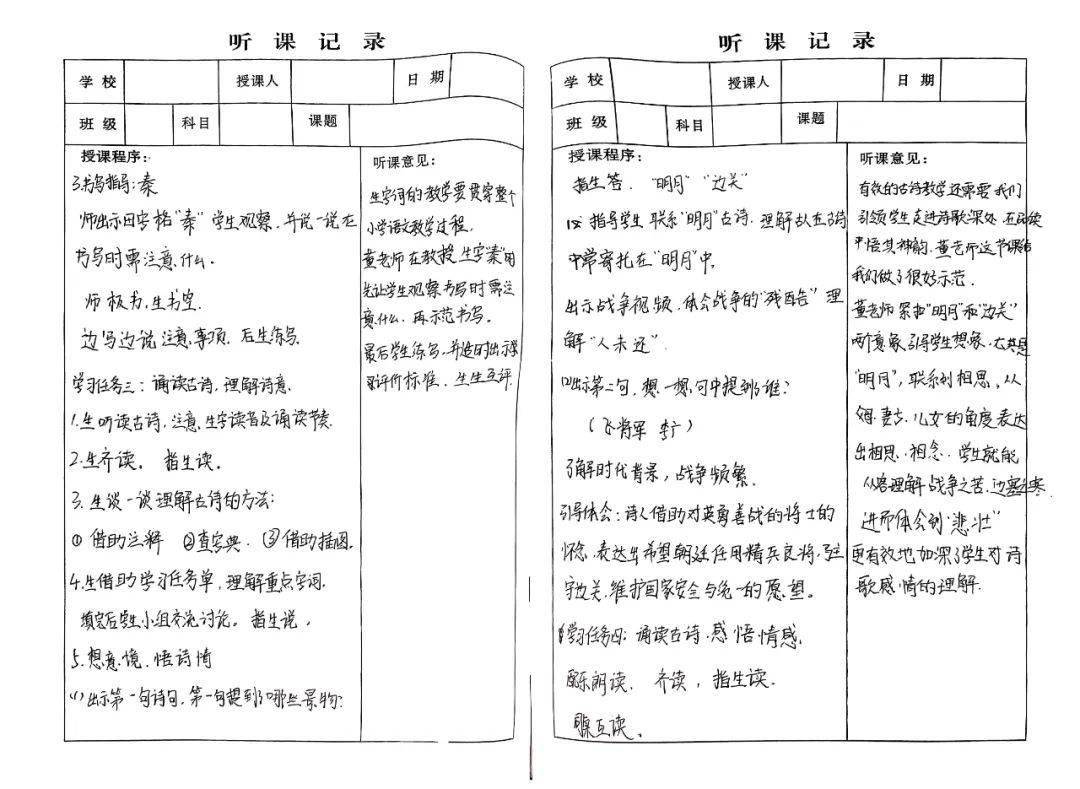 听课记录
学校 授课人 日期
班级 科目 课题
授课程序:
3.书写指导:秦
师出示田字格“秦”学生观察,并说一说在
书写时需注意什么.
师板书,生书空.
边写边说注意事项.后生练写.
学习任务三:诵读古诗,理解诗意.
1.生听读古诗,注意生字读音及诵读节奏.
2.生齐读. 指生读.
3.生谈一谈理解古诗的方法:
①借助注释 ②查字典. ③借助插图.
4.生借助学习任务单,理解重点字词.
填完后学生小组交流讨论。指生说,
5.想意境.悟诗情
(1)出示第一句诗句,第一句提到了哪些景物:
听课意见:
生字词的教学要贯穿整个
小学语文教学过程.
董老师在教授生字“秦”时
先让学生观察书写时需注
意什么.再示范书写.
最后学生练写,并适时出示
评价标准.生生互评.
听课记录
学校 授课人 日期
班级 科目 课题
授课程序:
指生答. “明月”“边关”
指导学生联系“明月”古诗.理解故在古诗
中常寄托在“明月”中.
出示战争视频.体会战争的“残酷”理
解“人未还”.
(2)出示第二句,想一想句中提到了谁?
(飞将军 李广)
了解时代背景,战争频繁.
引导体会:诗人借助对英勇善战的将士的
怀念.表达出希望朝廷任用精兵良将
守边关.维护国家安全与统一的愿望。
学习任务四:诵读古诗.感悟情感.
配乐朗读. 齐读,指生读.
互读.
听课意见:
有效的古诗教学还需要我们
引领学生走进诗歌深处.在品读
中悟其神韵.董老师这节课给
我们做了很好示范.
董老师紧扣“明月”和“边关”
两意象.引导学生想象.尤其是
“明月”,联系到相思.从
妻子.儿女的角度表达
出相思.相念.学生就能
从容理解战争之苦.边塞之寒.
进而体会到“悲壮”
更有效地加深了学生对诗
歌感情的理解.